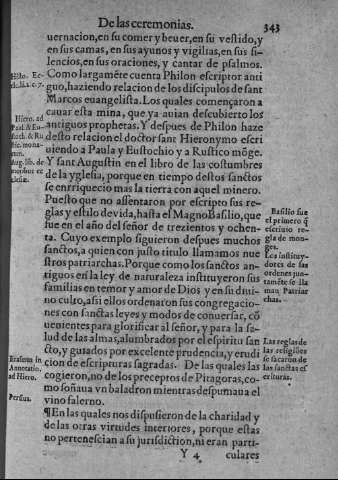 De las ceremonias.
343
uernacion, en su comer y beuer, en su vestido, y
en sus camas, en sus ayunos y vigilias, en sus si-
lencios, en sus oraciones, y cantar de psalmos.
Como largamẽte cuenta Philon escriptor anti
guo, haziendo relacion de los discipulos de sant
Marcos euangelista. Los quales començaron a
cauar esta mina, que ya auian descubierto los
antiguos prophetas. Y despues de Philon haze
desto relacion el doctor sant Hieronymo escri
uiendo a Paula y Eustochio y a Rustico mõge.
Y sant Augustin en el libro de las costumbres
de la yglesia, porque en tiempo destos sanctos
se enrriquecio mas la tierra con aquel minero.
Puesto que no assentaron por escripto sus re-
glas y estilo de vida, hasta el Magno Basilio, que
fue en el año del señor de trezientos y ochen-
ta. Cuyo exemplo siguieron despues muchos
sanctos, a quien con justo titulo llamamos nue
stros patriarchas. Porque como los sanctos an-
tiguos en la ley de naturaleza instituyeron sus
familias en temor y amor de Dios y en su diui-
no culto, assi ellos ordenaron sus congregacio-
nes con sanctas leyes y modos de conuersar, cõ
uenientes para glorificar al señor, y para la sa-
lud de las almas, alumbrados por el espiritu san
cto, y guiados por excelente prudencia, y erudi
cion de escripturas sagradas. De las quales las
cogieron, no de los preceptos de Pitagoras, co-
mo soñaua vn baladron mientras despumaua el
vino falerno.
¶En las quales nos dispusieron de la charidad y
de las otras virtudes interiores, porque estas
no pertenescian a su jurisdiction, ni eran parti-
Y 4
culares
Histo. Ec-
cle. li. 2. c. 7.
Hiero. ad
Paul. & Eu
stoch. & Ru
stic. mona-
cum.
Aug. lib. de
moribus ec
clesiæ.
Erasmo in
Annotatio.
ad Hiero.
Persius.
Basilio fue
el primero q̃
escriuio re-
gla de mon-
ges.
Los instituy-
dores de las
ordenes jun-
tamẽte se lla
man Patriar
chas.
Las reglas de
las religiões
se sacaron de
las sanctas es
crituras.